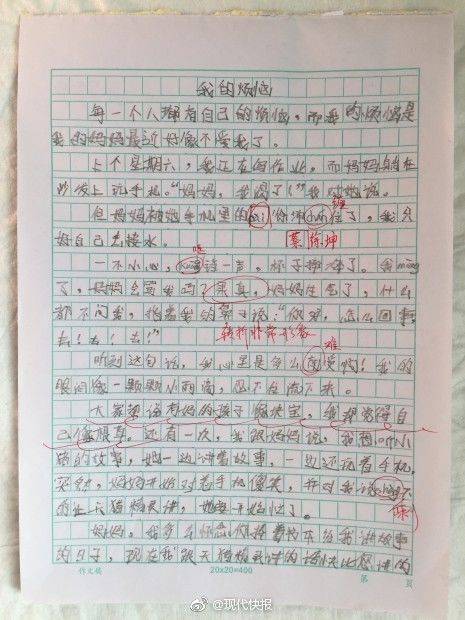 我的烦恼
每一个人都有自己的烦恼，而我的烦恼是
我的妈妈最近好像不爱我了。
上个星期六，我正在写作业，而妈妈躺在
沙发上玩手机。“妈妈，我渴了！”我对她说。
但妈妈被她手机里的 你 住了，我只
缠
好自己去接水。
蔡徐坤
哐
一不小心，“kuāng”一声，杯子掉 了。我
了，妈妈会骂我吗？果真，妈妈生气了，什么
都不问我，指着我的鼻子说：“你呀，怎么回事，
去！去！去！”
转折非常形象
难
听到这句话，我心里是多么 受啊！我的
眼泪像一颗颗小雨滴，忍不住流下来。
大家都说有妈的孩子像块宝，我却觉得自
己像根草。还有一次，我跟妈妈说，我想听小
猪的故事，她一边讲着故事，一边还看手机，
突然，妈妈开始对着手机傻笑，并对我说
让天猫精灵讲，她
妈妈，我多么怀念你捧着书本给我讲故事
的日子，现在我跟天猫精灵讲的话快比您讲的
作文稿
20×20=400
第 页
@现代快报